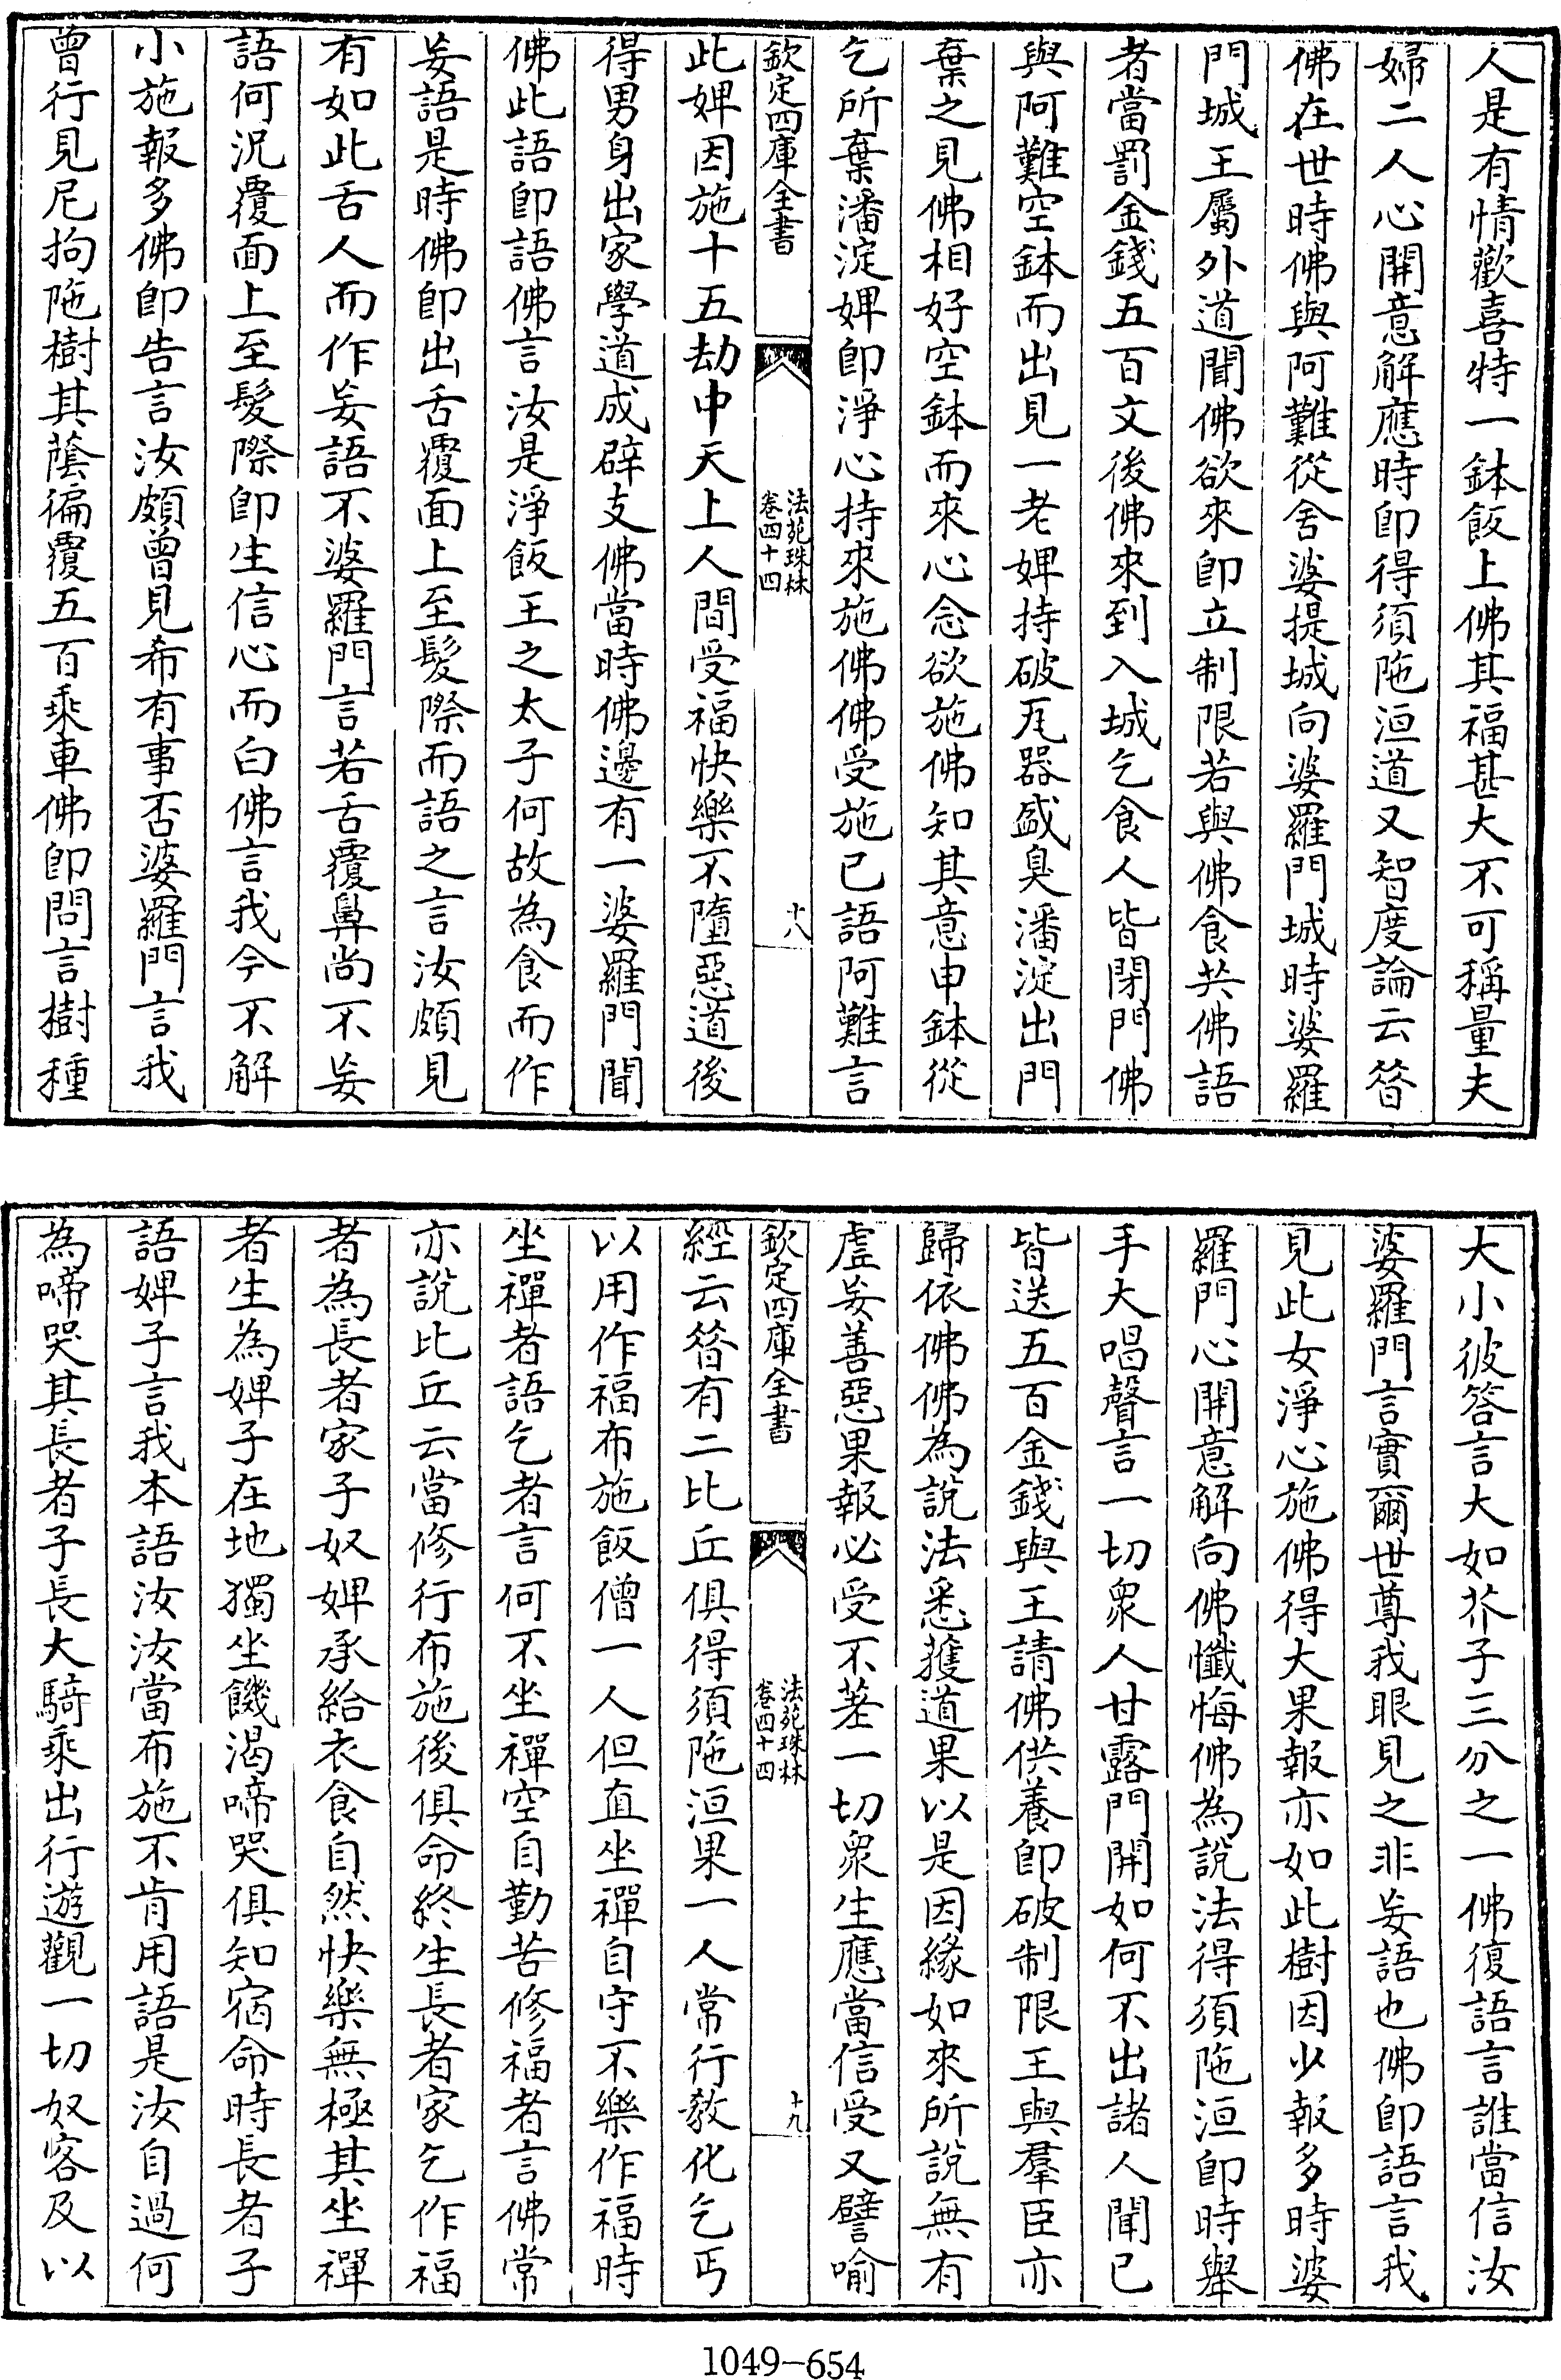 人是有情歡喜特一鉢飯上佛其福甚大不可稱量夫
婦二人心開意解應時即得須陁洹道又智度論云昝
佛在世時佛與阿難從舍婆提城向婆羅門城時婆羅
門城王屬外道聞佛欲來即立制限若與佛食共佛語
者當罰金錢五百文後佛來到入城乞食人皆閉門佛
與阿難空鉢而出見一老婢持破瓦器盛臭潘淀出門
棄之見佛相好空鉢而來心念欲施佛知其意申鉢從
乞所棄潘淀婢即淨心持來施佛佛受施已語阿難言
欽定四庫全書
法苑珠林
卷四十四
十八
此婢因施十五劫中天上人間受福快樂不墮惡道後
得男身出家學道成辟支佛當時佛邊有一婆羅門聞
佛此語即語佛言汝是淨飯王之太子何故為食而作
妄語是時佛即出舌覆面上至髮際而語之言汝頗見
有如此舌人而作妄語不婆羅門言若舌覆鼻尚不妄
語何況覆面上至髮際即生信心而白佛言我今不解
小施報多佛即告言汝頗曾見希有事否婆羅門言我
曾行見尼拘陁樹其蔭徧覆五百乘車佛即問言樹種
大小彼答言大如芥子三分之一佛復語言誰當信汝
婆羅門言實爾世尊我眼見之非妄語也佛即語言我
見此女淨心施佛得大果報亦如此樹因少報多時婆
羅門心開意解向佛懺悔佛為說法得須陁洹即時舉
手大唱聲言一切衆人甘露門開如何不出諸人聞已
皆送五百金錢與王請佛供養即破制限王與羣臣亦
歸依佛佛為說法悉獲道果以是因緣如來所說無有
虛妄善惡果報必受不差一切衆生應當信受又譬喻
欽定四庫全書
法苑珠林
卷四十四
十九
經云昝有二比丘俱得須陁洹果一人常行教化乞丐
以用作福布施飯僧一人但直坐禪自守不樂作福時
坐禪者語乞者言何不坐禪空自勤苦修福者言佛常
亦說比丘云當修行布施後俱命終生長者家乞作福
者為長者家子奴婢承給衣食自然快樂無極其坐禪
者生為婢子在地獨坐饑渴啼哭俱知宿命時長者子
語婢子言我本語汝汝當布施不肯用語是汝自過何
為啼哭其長者子長大騎乘出行遊觀一切奴客及以
1049-654